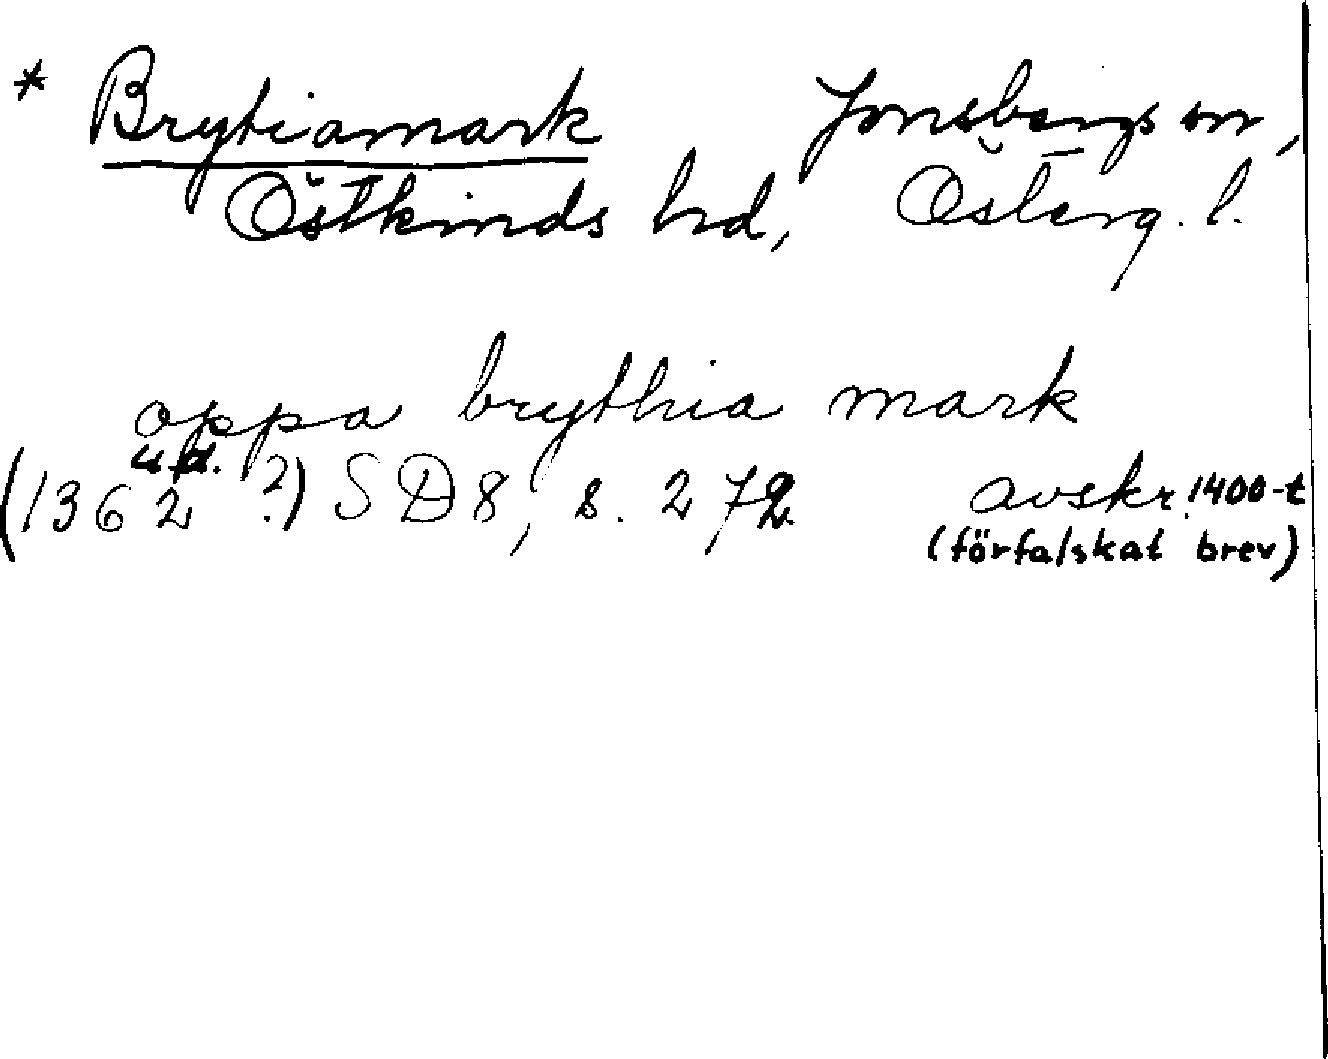 * Brytiamark Jonsbergs sn,
Östkinds hd, Österg. l.
oppa brythia mark
u.d.
(1362 ?) SD8, s. 272 avskr. 1400-t
(förfalskat brev)